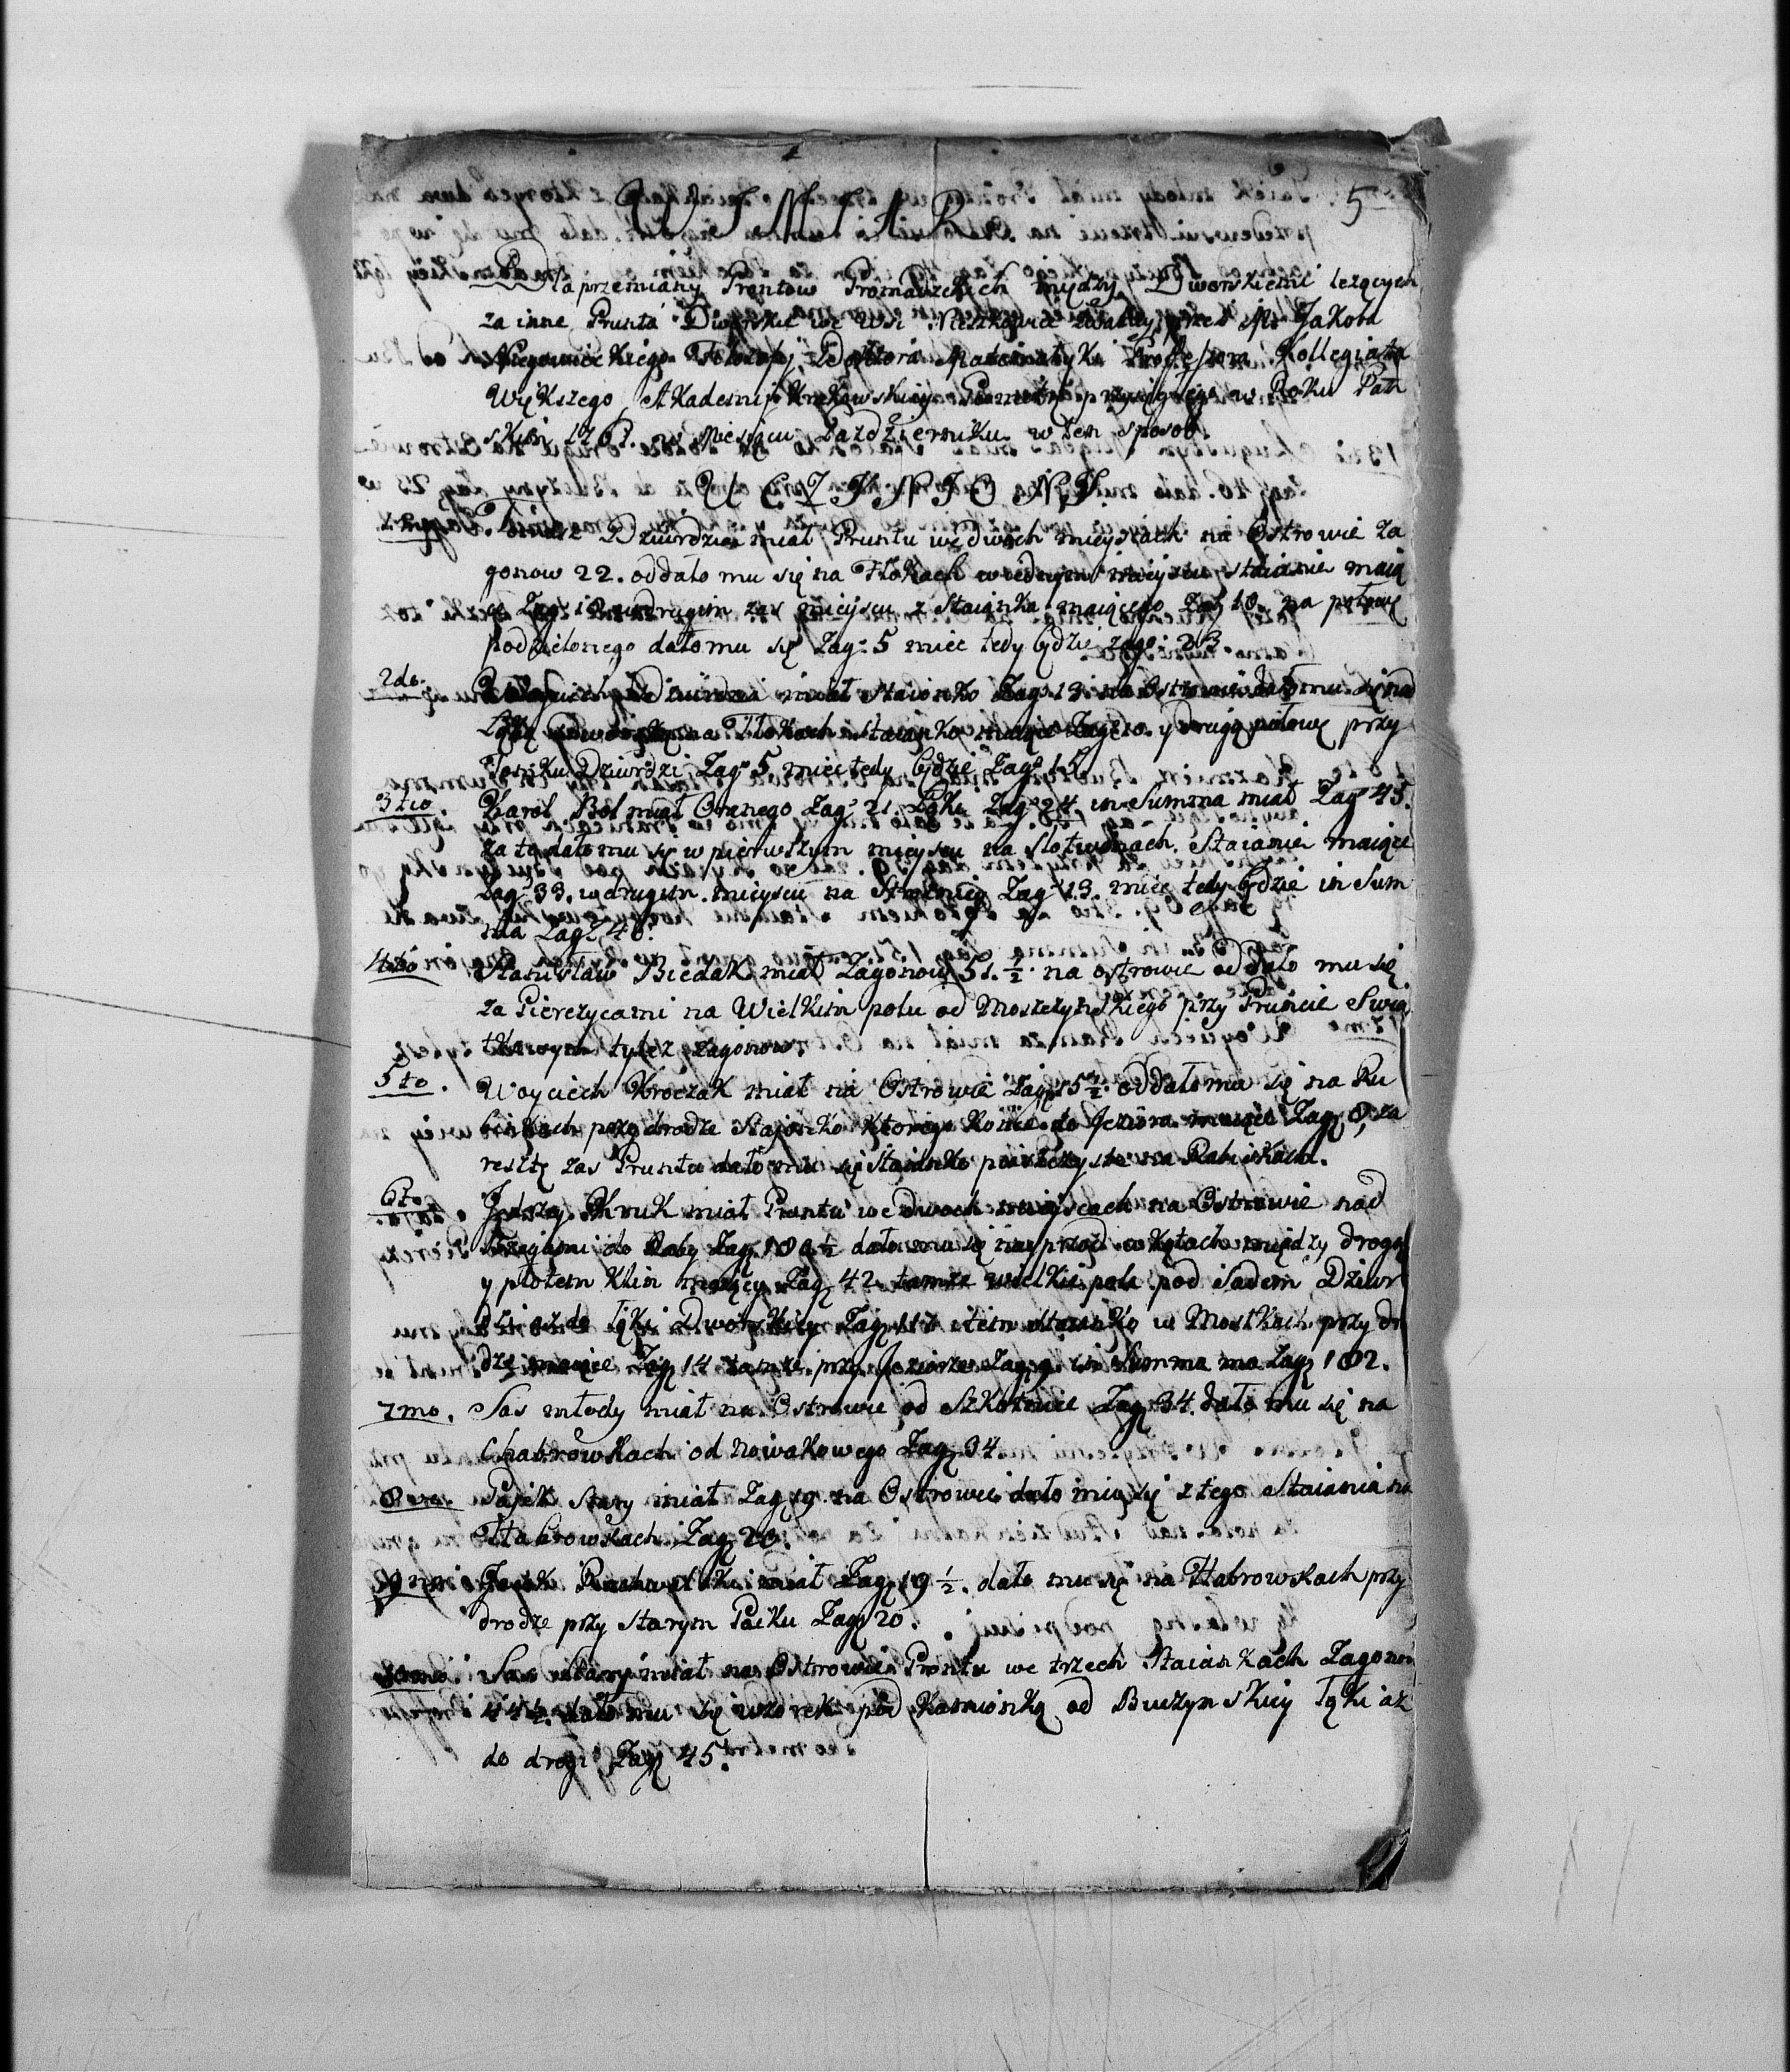 5
WYMIAR
Dla przemiany Gruntow Gromadzkich między Dworskiemi leżących
za inne Grunta Dworskie we Wsi Nieszkowice zwaney przez Mr Jakoba
Niegowieckiego Filozofij Doktora Matematyki Professora Kollegiata
Większego Akademij Krakowskiey Geometrę przysięgłego w Roku Pań
skim 1767. w Miesiącu Pazdzierniku w ten sposob
UCZYNIONY.
Dziurdzia miał Gruntu we dwoch mieyscach na Ostrowie Za
gonow 22. oddało mu się na Tłokach w iednym mieyscu staianie maią
ce Zag: 18 w drugim zas mieyscu z Staianka maiącego Zag 10. na połowę
podzielonego dało mu się Zag: 5 miec tedy będzie zago: 23
2do. Dziurdzia miał Staionko Zag: 13 na Ostrowie dało mu się nad
Łąką Dworską na Tłokach Staianko maiące Zag: 10. y drugą połowę przy
Dziurdzi Zag: 5. miec tedy będzie Zag: 15
3tio. Karol Bol miał Ornego Zag: 21. Łąki Zag: 24 in Summa miał Zag: 45.
za to dało mu się w pierwszym mieyscu na Slotwinach Staianie maiące
Zag: 33. w drugim mieyscu na Zag: 13. miec tedy będzie in Sum
ma Zag: 46.
4to Stanisław Biedak miał Zagonow 51. ½ na ostrowie oddało mu się
za Pierzycami na Wielkim polu od Moszczynskiego przy Gruncie Swią
tkowym tyleż zagonow.
5to. Woyciech Kroczak miał na Ostrowie Zag: 15½ oddało mu się na Ru
binkach przy drodze Stajonko ktorego konie do Jeziora maiące Zag: 8, za
resztę zas Gruntu dało mu się Staianko na Rabinkach.
6to. Jędrzey Kruk miał Gruntu we dwoch mieyscach na Ostrowie nad
Brzegami do Raby Zag: 180½ dało mu się naprzod w Kątach między drogą
y płotem Klin maiący Zag: 42 tamże wielkie pole pod Sadem Dziur
dzi aż do łąki Dworskiey Zag: 117 item Staianko w Mostkach przy dro
dze maiące Zag: 14 tamże przy Jeziorze Zag: 9 in Summa ma Zag: 182.
7mo. Sas młody miał na Ostrowie od Szkotnice Zag: 34. dało mu się na
Chabrowkach od Nowakowego Zag: 34
8vo. Pajek Stary miał Zag: 19. na Ostrowie dało mu się z tego Staiania na
Habrowkach Zag: 20.
9no. miał Zag: 19½. dało mu się na Habrowkach przy
drodze przy Starym Paiku Zag: 20.
10mo. Sas stary miał na Ostrowie Gruntu we trzech Staiankach Zagonow
44½. dało mu się wzorek pod Kamionką od Buczynskiey łąki aż
do drogi Zag: 45.